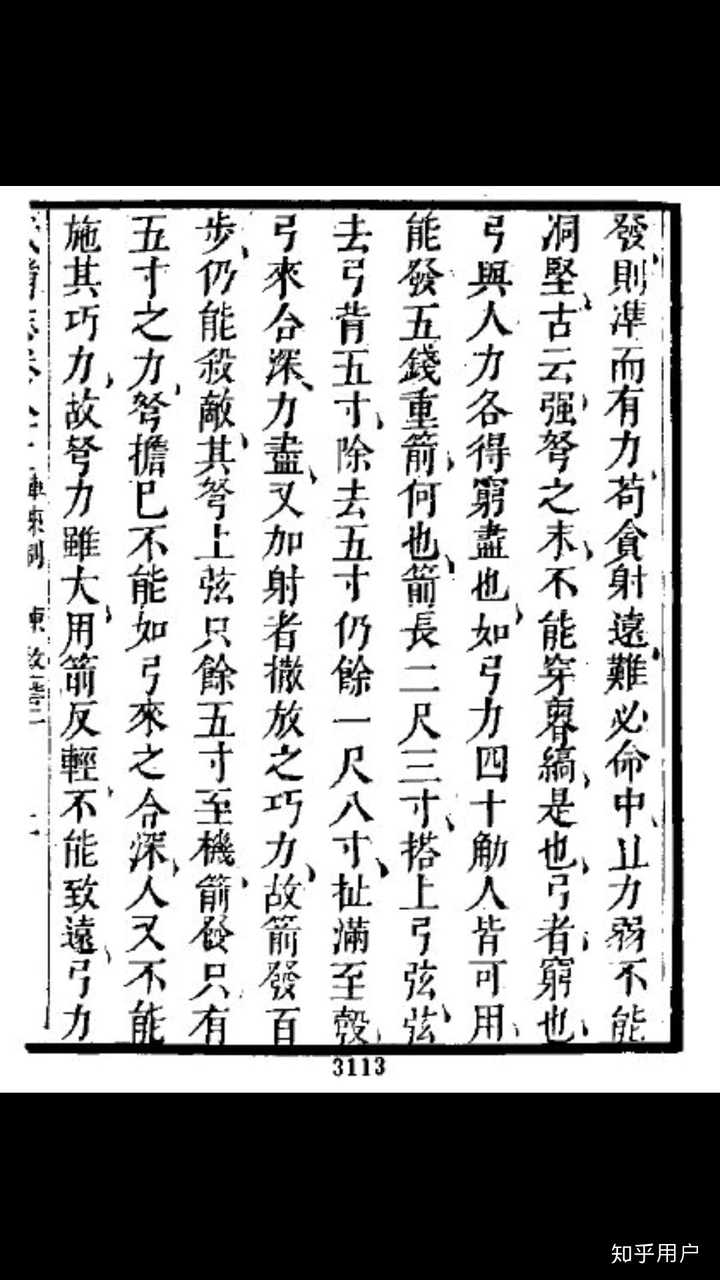 發則準而有力苟貪射遠難必命中且力弱不能
洞堅古云强弩之末不能穿魯縞是也弓者窮也
弓與人力各得窮盡也如弓力四十觔人皆可用
能發五錢重箭何也箭長二尺三寸搭上弓弦弦
去弓背五寸除去五寸仍餘一尺八寸扯滿至彀
弓來合深力盡又加射者撒放之巧力故箭發百
步仍能殺敵其弩上弦只餘五寸至機箭發只有
五寸之力弩擔已不能如弓來之合深人又不能
施其巧力故弩力雖大用箭反輕不能致遠弓力
3113
知乎用户